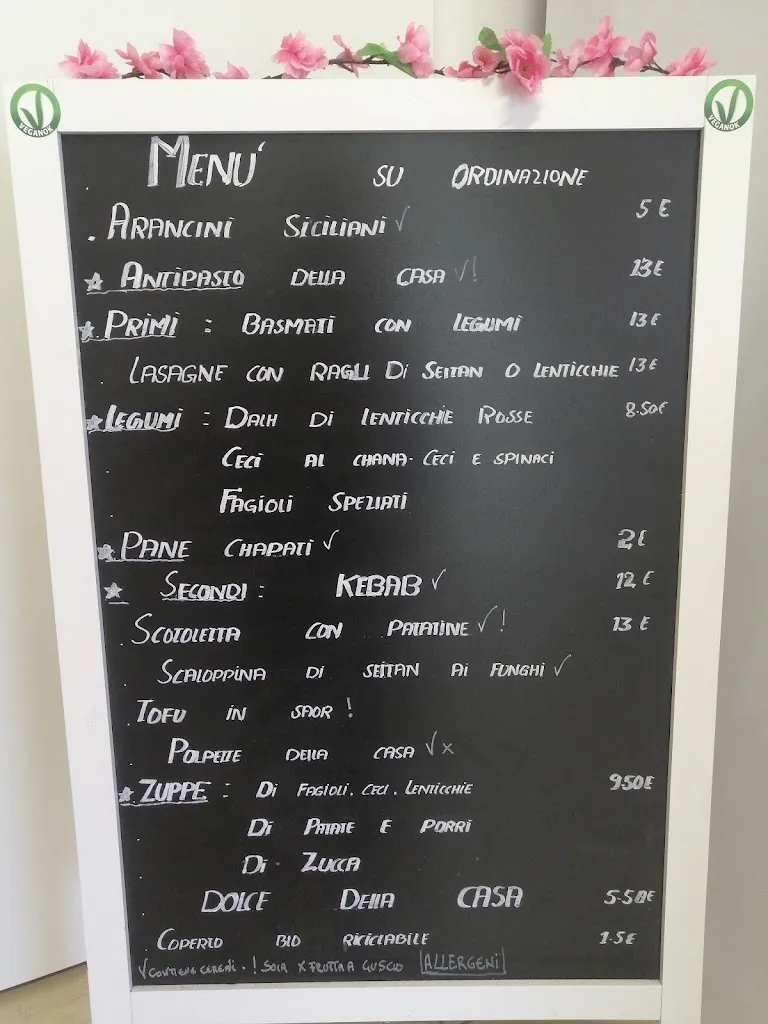 VEGANOK VEGANOK
MENU' SU ORDINAZIONE
. ARANCINI SICILIANI √ 5 €
★ ANTIPASTO DELLA CASA √! 13€
★ PRIMI : BASMATI CON LEGUMI 13€
. LASAGNE CON RAGU DI SEITAN O LENTICCHIE 13€
★ LEGUMI : DALH DI LENTICCHIE ROSSE 8.50€
. CECI AL CHANA - CECI E SPINACI
. FAGIOLI SPEZIATI
★ PANE CHAPATI √ 2€
★ SECONDI : KEBAB √ 12€
. SCOTOLETTA CON PATATINE √ ! 13 €
. SCALOPPINA DI SEITAN AI FUNGHI √
. TOFU IN SAOR !
. POLPETTE DELLA CASA √ x
★ ZUPPE : DI FAGIOLI, CECI, LENTICCHIE 9.50€
. DI PATATE E PORRI
. DI ZUCCA
. DOLCE DELLA CASA 5.50€
. COPERTO BIO RICICLABILE 1.5€
√ CONTIENE CEREALI . ! SOIA X FRUTTA A GUSCIO ALLERGENI